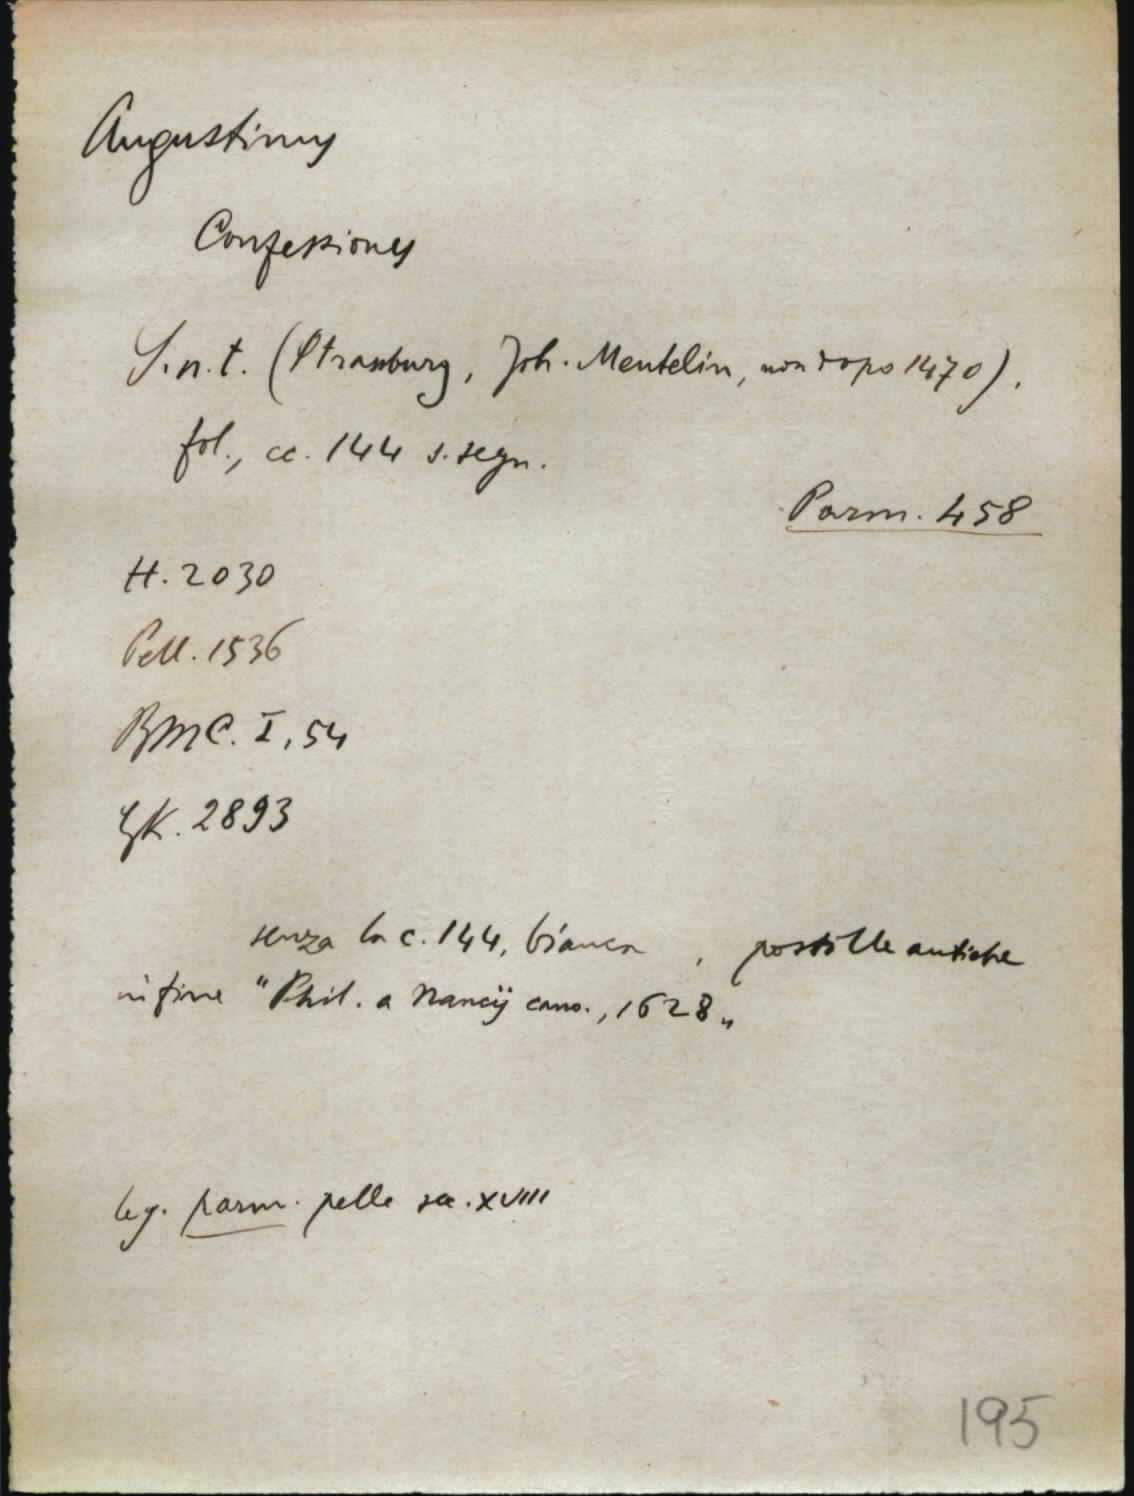 Augustinus
Confessiones
S.n.t. (Strassburg, Joh. Mentelin, non dopo 1470).
fol., cc. 144 s. segn.
Parm. 458
H. 2030
Pell. 1536
BMC. I, 54
GK. 2893
senza la c. 144, bianca , postille antiche
in fine "Phil. a Nancÿ cano., 1628„
leg. parm. pelle sec. XVIII
195